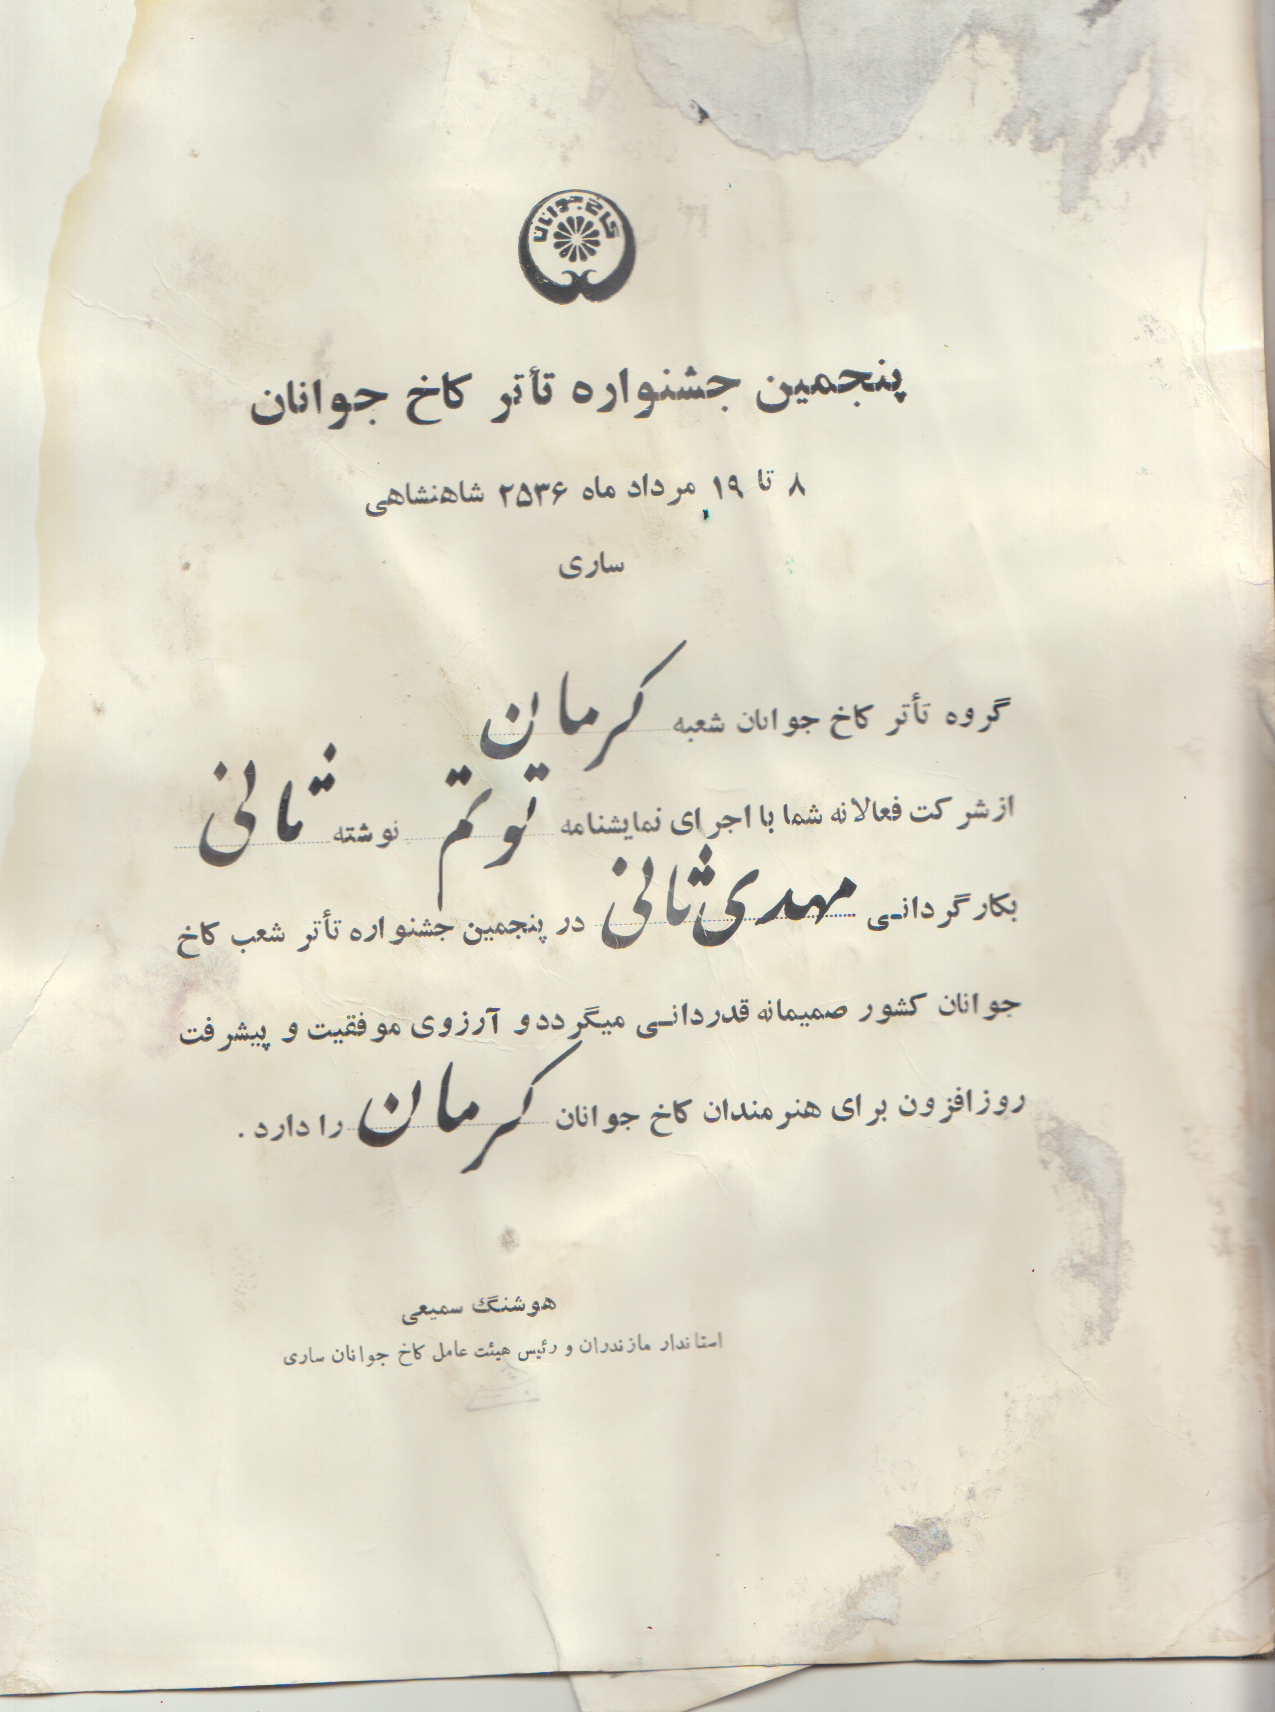 کاخ جوانان
پنجمین جشنواره تأتر کاخ جوانان
۸ تا ۱۹ مرداد ماه ۲۵۳۶ شاهنشاهی
ساری
گروه تأتر کاخ جوانان شعبه کرمان
از شرکت فعالانه شما با اجرای نمایشنامه توتم نوشته ثانی
بکارگردانی مهدی ثانی در پنجمین جشنواره تأتر شعب کاخ
جوانان کشور صمیمانه قدردانی میگردد و آرزوی موفقیت و پیشرفت
روزافزون برای هنرمندان کاخ جوانان کرمان را دارد .
هوشنگ سمیعی
استاندار مازندران و رئیس هیئت عامل کاخ جوانان ساری